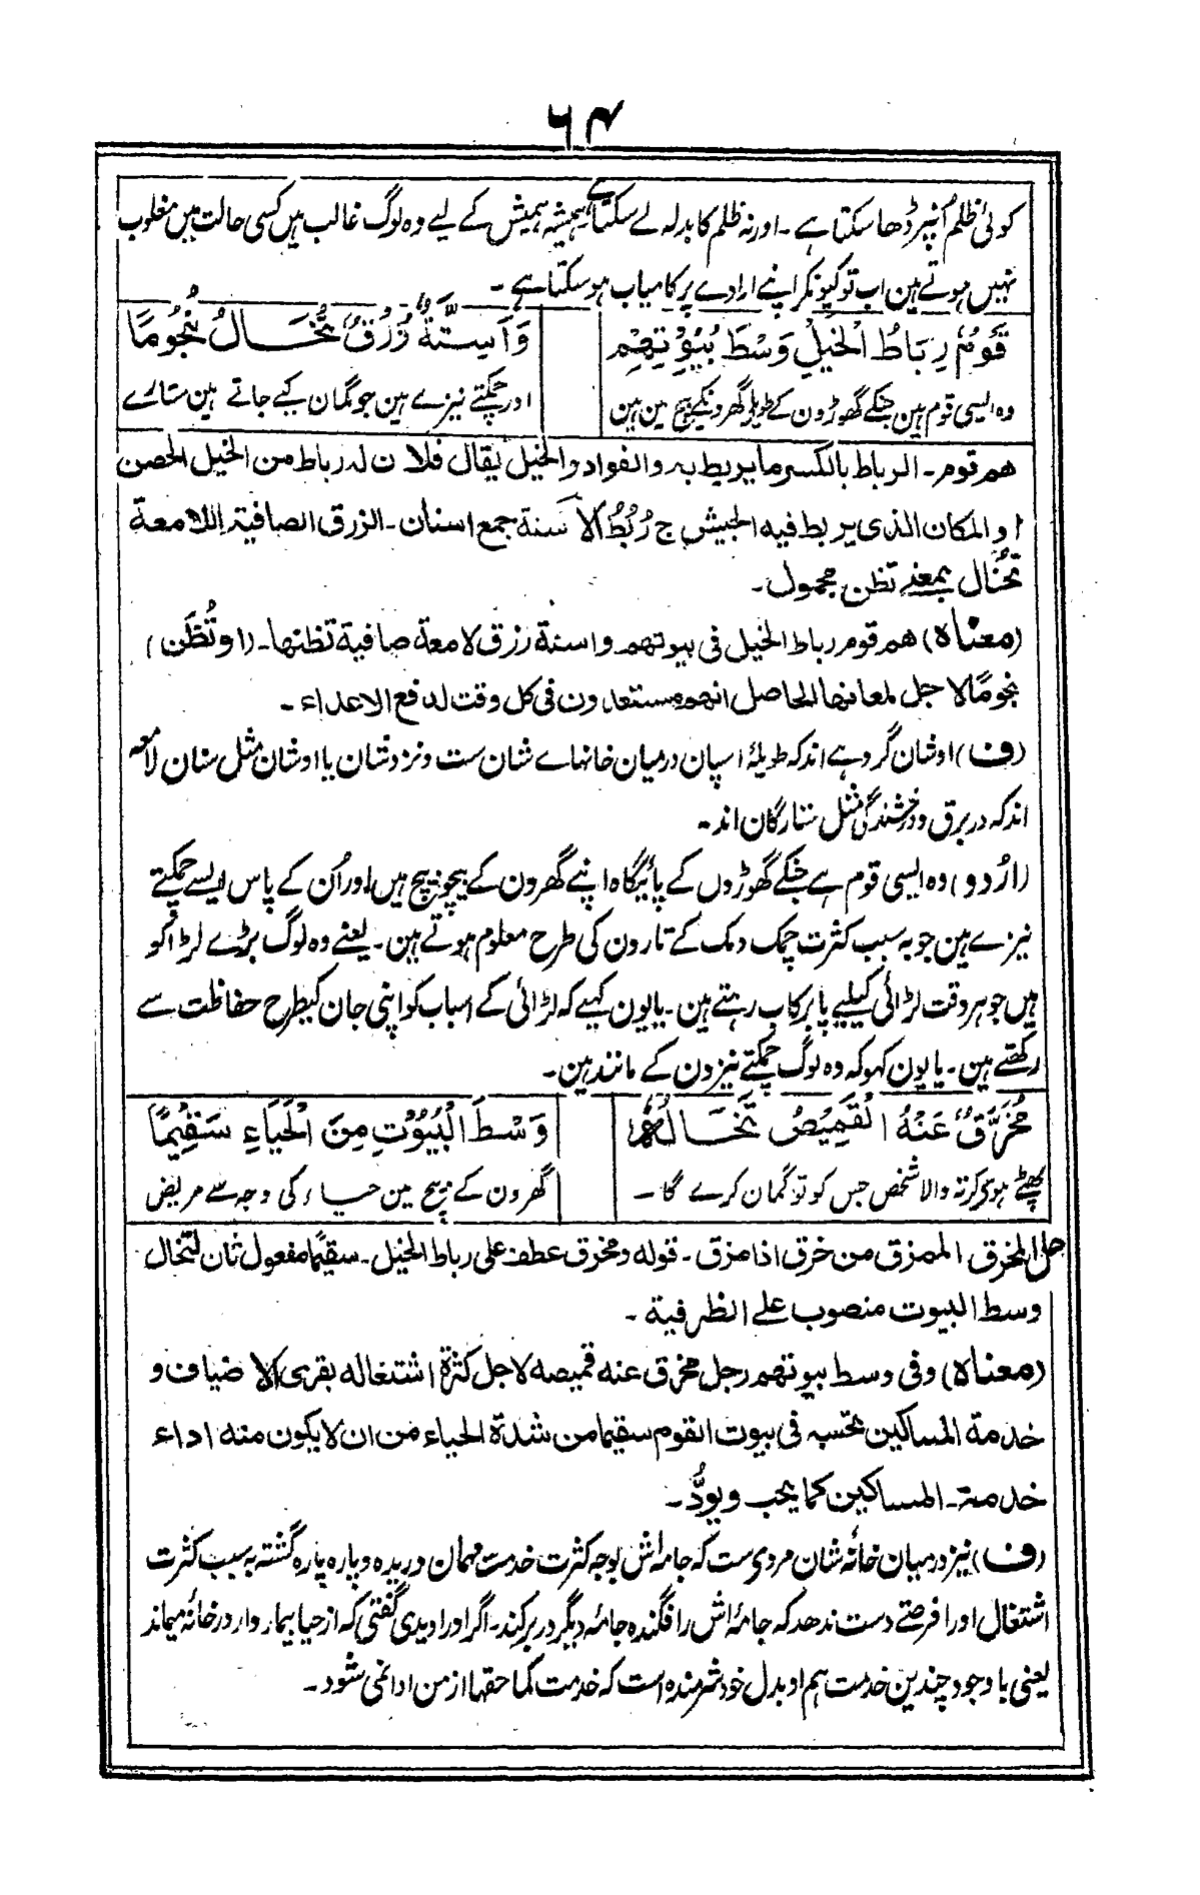 ۶۴
کوئی ظلم اُنپر ڈھا سکتا ہے ۔ اور نہ ظلم کا بدلہ لے سکتا ہے ہمیشہ ہمیش کے لیے وہ لوگ غالب ہیں کسی حالت میں مغلوب
نہیں ہوتے ہین اب تو کیونکر اپنے ارادے پر کامیاب ہو سکتا ہے ۔
قَوْمٌ رِبَاطُ الْخَيْلِ وَسْطَ بُيُوْتِهِمْ وَاَسِنَّةٌ زُرْقٌ تُخَالُ نُجُوْمًا
وہ ایسی قوم ہین جنکے گھوڑون کے طویلہ گھر ونکے بیچ مین ہین اور چمکتے نیزے ہین جو گمان کیے جاتے ہین ستارے
هم قوم ۔ الرباط بالكسر ما يربط به والفواد والخيل يقال فلان له رباط من الخيل الحصن
او المكان الذى يربط فيه الجيش ج رُبُطٌ الاَسنة جمع اسنان ۔ الزرق الصافية اللامعة
تُخَال بمعنے تظن مجهول ۔
(معناه) هم قوم رباط الخيل فى بيوتهم واسنة رزق لامعة صافية تظنها ۔ (او تُظَن)
نجومًا لاجل لمعانها الحاصل انهم مستعدون فى كل وقت لدفع الاعداء ۔
(ف) اوشان گروہے اند کہ طویلۂ اسپان درمیان خانہاے شان ست و نزد شان یا اوشان مثل سنان لامعہ
اند کہ در برق و درخشندگی مثل ستارگان اند ۔
(اُردو) وہ ایسی قوم ہے جنکے گھوڑوں کے پائیگاہ اپنے گھرون کے بیچو نبیچ ہیں اور اُن کے پاس ایسے چمکتے
نیزے ہین جو بہ سبب کثرت چمک دمک کے تارون کی طرح معلوم ہوتے ہین ۔ یعنے وہ لوگ بڑے لڑاکو
ہیں جو ہر وقت لڑائی کیلیے پا برکاب رہتے ہین ۔ یا یون کہیے کہ لڑائی کے اسباب کو اپنی جان کیطرح حفاظت سے
رکھتے ہین ۔ یا یون کہو کہ وہ لوگ چمکتے نیزون کے مانند ہین ۔
مُخَرَّقٌ عَنْهُ الْقَمِيْصُ تَخَالُهٗ وَسْطَ الْبُيُوْتِ مِنَ الْحَيَاءِ سَقِيْمًا
پھٹے ہوے کرتہ والا شخص جس کو تو گمان کرے گا ۔ گھرون کے بیچ مین حیاء کی وجہ سے مریض
حل المخرق الممزق من خرق اذا مزق ۔ قوله ومخرق عطف على رباط الخيل ۔ سقيمًا مفعول ثان لتخال
وسط البيوت منصوب علے الظرفية ۔
(معناه) وفى وسط بيوتهم رجل مخرق عنه قميصه لاجل كثرة اشتغاله بقرى الاضياف و
خدمة المساكين تحسبه فى بيوت القوم سقيما من شدة الحياء من ان لا يكون منه اداء
خدمة ۔ المساكين كما يجب ويودُّ ۔
(ف) نیز درمیان خانہ شان مردی ست کہ جامہ اش بوجہ کثرت خدمت مہمان دریدہ و پارہ پارہ گشتہ بہ سبب کثرت
اشتغال اورا فرصتے دست ندھد کہ جامۂ اش را فگندہ جامۂ دیگر در بر کند ۔ اگر اورا دیدی گفتی کہ از حیا بیمار وار در خانہ میماند
یعنی با وجود چندین خدمت ہم او بدل خود شرمندہ است کہ خدمت کما حقہا از من ادا نمی شود ۔